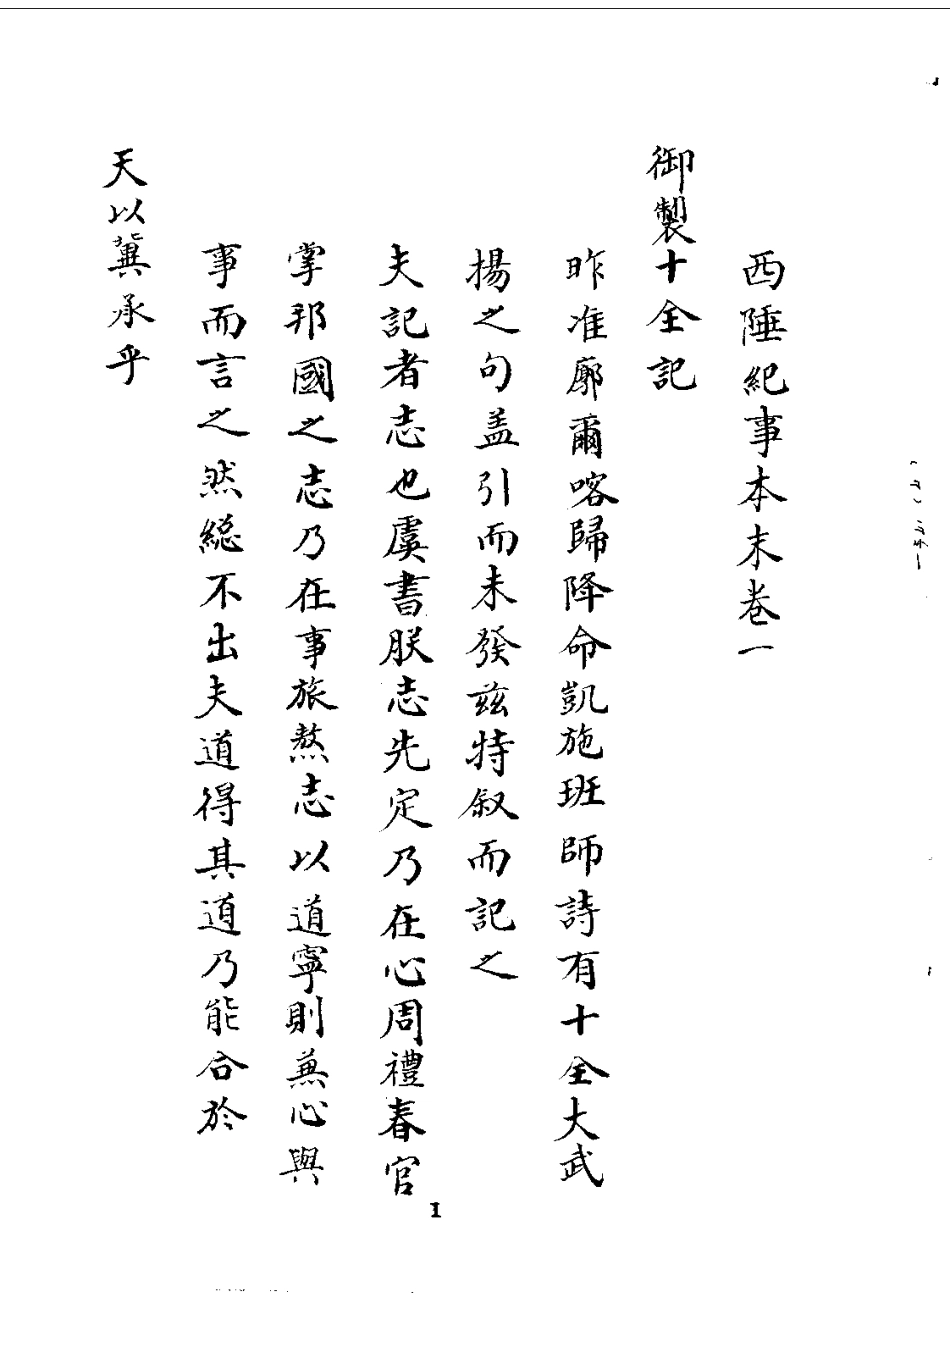 西陲紀事本末卷一
御製十全記
昨准廓爾喀歸降命凱施班師詩有十全大武
揚之句盖引而未發兹特叙而記之
夫記者志也虞書朕志先定乃在心周禮春官
掌邦國之志乃在事旅熬志以道寧則兼心與
事而言之然總不出夫道得其道乃能合於
天以冀承乎
1